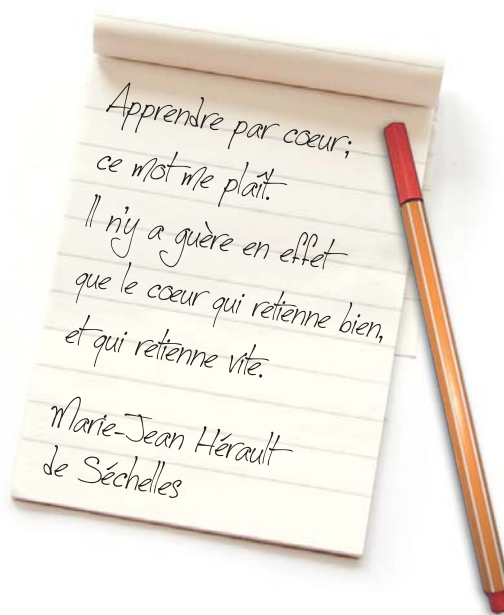 Apprendre par cœur;
ce mot me plaît.
Il n'y a guère en effet
que le cœur qui retienne bien,
et qui retienne vite.
Marie-Jean Hérault
de Séchelles